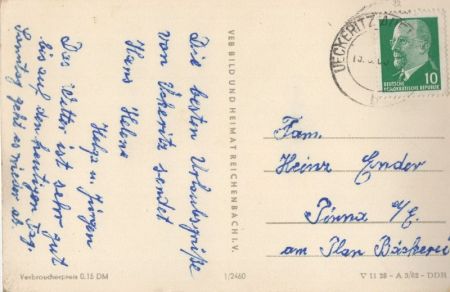 Die besten Urlaubsgrüße
von Uckeritz sendet
Hans Helene
Helga u. Jürgen
Das Wetter ist sehr gut
bis auf den heutigen Tag.
Sonntag geht es wieder ab.
VEB BILD UND HEIMAT REICHENBACH I. V.
UECKERITZ
10
DEUTSCHE
DEMOKRATISCHE REPUBLIK
Fam.
Heinz Ender
Pirna a/E.
am Plan Bäckerei
Verbraucherpreis 0,15 DM
1/2460
V 11 28 - A 3/62 - DDR